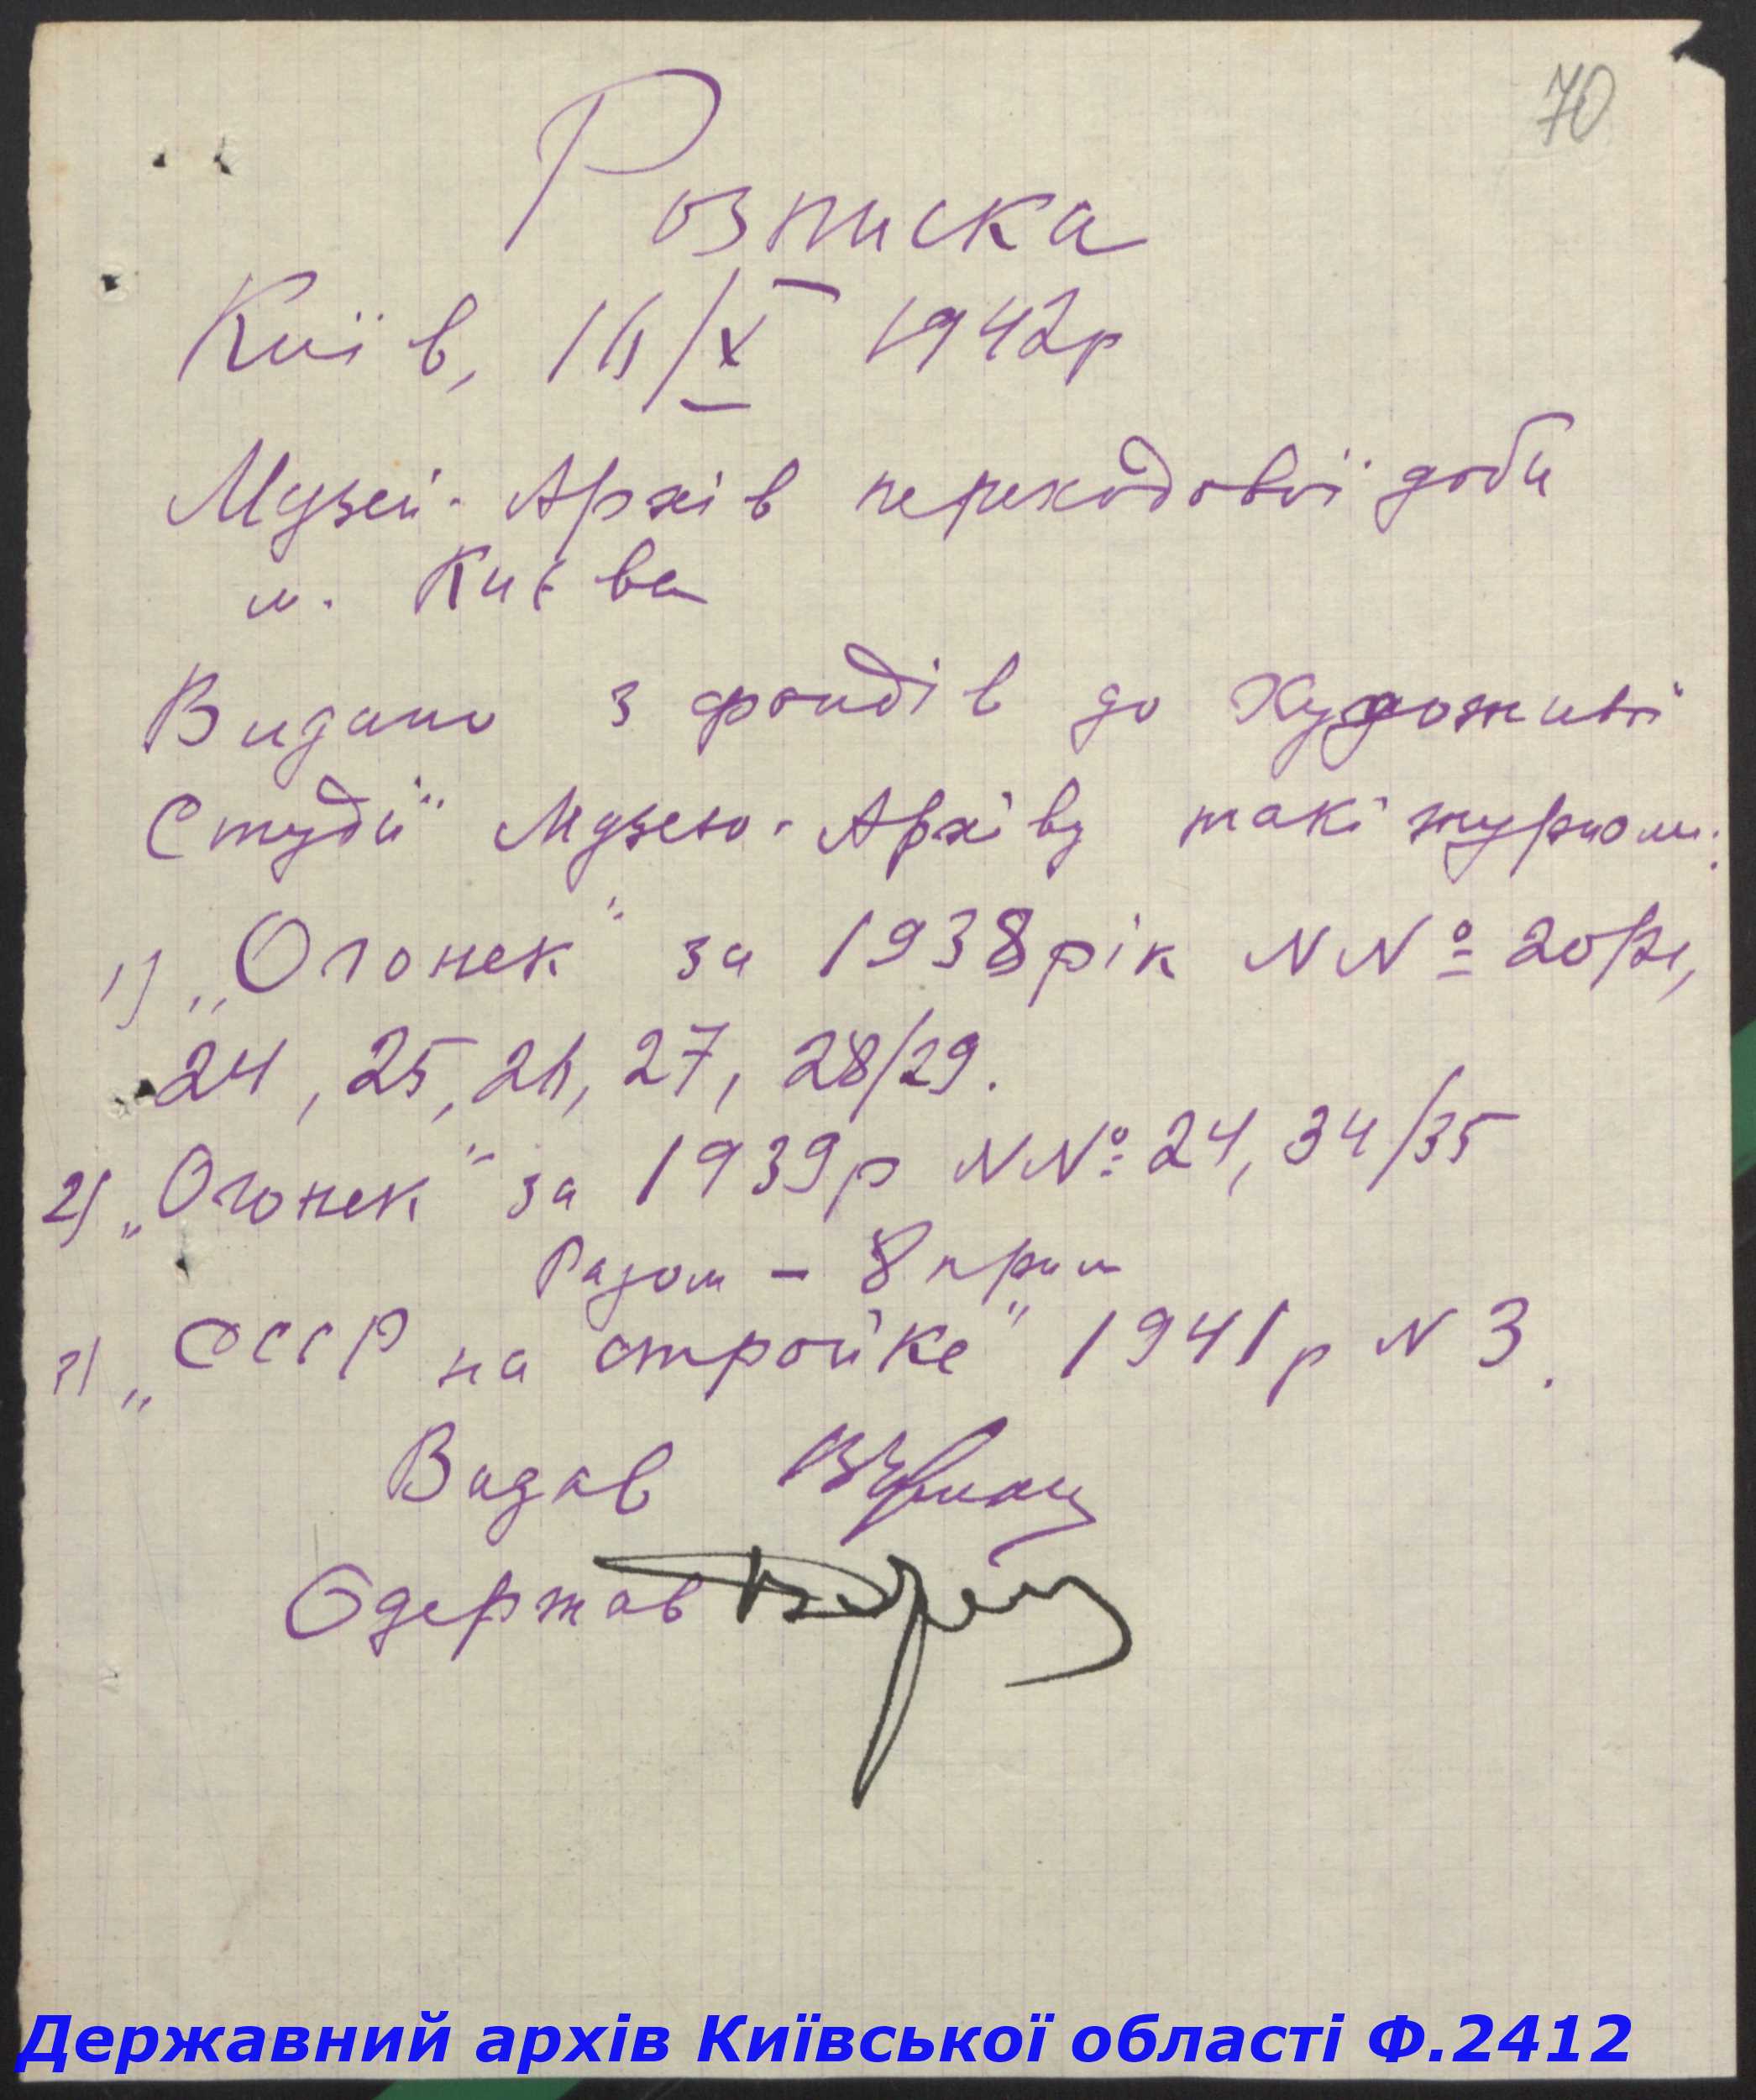 70
Розписка
Київ, 16/X 1942р
Музей-Архів переходової доби
м. Києва
Видано з фондів до Художньої
Студії Музею-Архіву такі журнали:
1) „Огонек" за 1938 рік NN° 20/21,
24, 25, 26, 27, 28/29.
2) „Огонек" за 1939р NN° 24, 34/35
Разом - 8 прим
3) „СССР на стройке" 1941р N 3.
Видав
Одержав
Державний архів Київської області Ф.2412